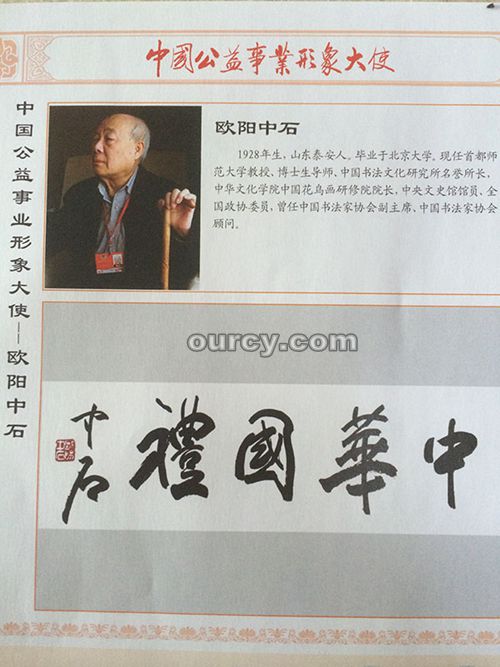 中國公益事業形象大使
中国公益事业形象大使——欧阳中石
欧阳中石
1928年生，山东泰安人。毕业于北京大学，现任首都师
范大学教授、博士生导师，中国书法文化研究所名誉所长，
中华文化学院中国花鸟画研修院院长，中央文史馆馆员，全
国政协委员，曾任中国书法家协会副主席、中国书法家协会
顾问。
ourcy.com
中華國禮
中石